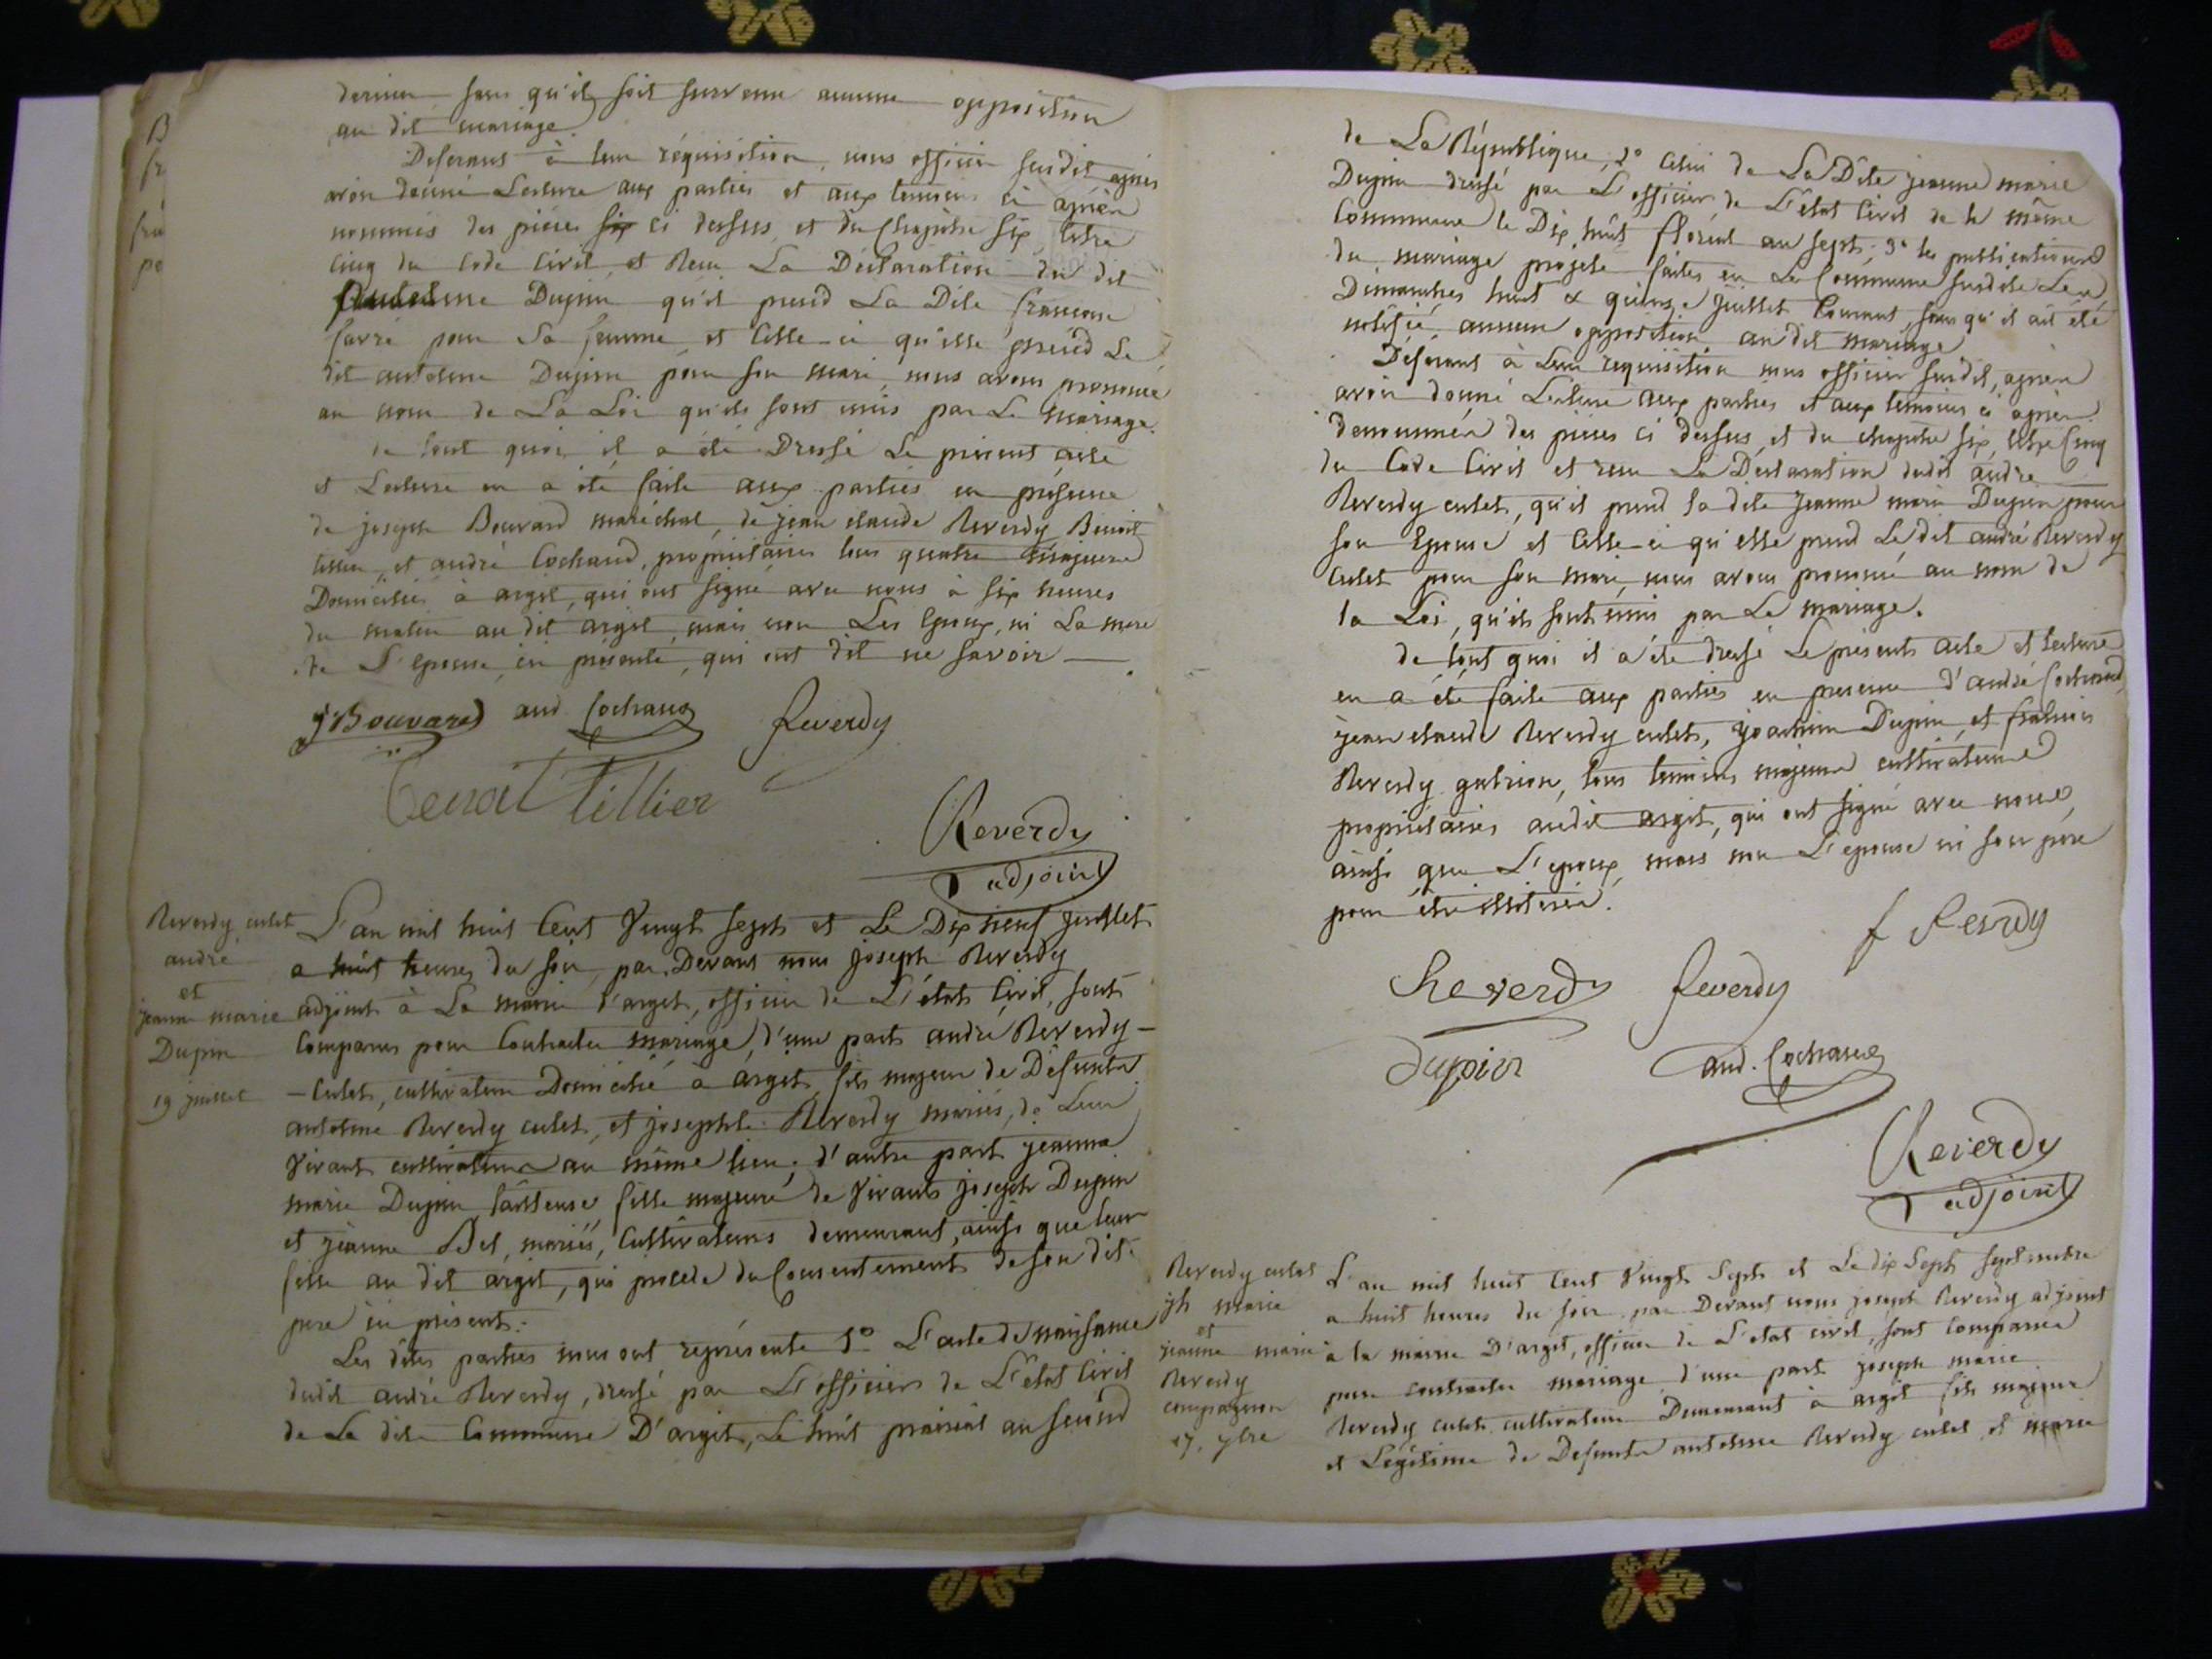 dernier sans qu'il soit survenu aucune opposition
au dit mariage.
Déférant à leur réquisition, nous officier susdit, après
avoir donné Lecture aux parties et aux temoins ci après
nommés des pièces six ci dessus, et du Chapitre six, titre
cinq du Code Civil, et Recu La Déclaration du dit
antoine Dupin qu'il prend La Dite francoise
favre pour Sa femme, et Celle-ci qu'elle prend Le
dit antoine Dupin pour son mari, nous avons prononcé
au nom de La Loi qu'ils sont unis par Le mariage.
de tout quoi il a été Dressé Le présent acte
et Lecture en a été faite aux parties en présence
de joseph Bouvard maréchal, de jean claude Reverdy Benoit
tillier, et andré Cochand, propriétaires tous quatre majeurs
Domiciliés à argit, qui ont signé avec nous à six heures
du matin au dit argit, mais non Les Epoux, ni La mere
de L'Epouse, ici présente, qui ont dit ne savoir
J Bouvard and. Cochand Reverdy
Benoit tillier
Reverdy
adjoint
Reverdy culet
andré
et
jeanne marie
Dupin
19 juillet
L'an mil huit Cent Vingt sept et Le Dix neuf juillet
a huit heures du soir, par Devant nous joseph Reverdy
adjoint à La mairie d'argit, officier de L'état Civil, sont
Comparus pour Contracter mariage, d'une part andré Reverdy-
-Culet, cultivateur Domicilié à argit, fils majeur de Défunts
antoine Reverdy culet, et josephte Reverdy mariés, de Leur
Vivant cultivateurs au même lieu; d'autre part jeanne
marie Dupin tailleuse fille majeure de Vivants joseph Dupin
et jeanne Bel, mariés, Cultivateurs demeurant, ainsi que leur
fille au dit argit, qui procede du Consentement de son dit
pere ici présent.
Les dites parties nous ont représenté 1° L'acte de naissance
dudit andré Reverdy, dressé par L'officier de L'état Civil
de La dite Commune D'argit, Le huit prairial an second
de La République, 2° Celui de La Dite jeanne marie
Dupin dressé par L'officier de L'état Civil de la même
Commune le Dix huit floréal an sept; 3° les publications
du mariage projeté faites en La Commune susdite Les
Dimanches huit & quinze juillet Courant, sans qu'il ait été
notifié aucune opposition au dit mariage
Déférant à Leur requisition nous officier susdit, après
avoir donné Lecture aux parties et aux temoins ci après
denommés des pièces ci dessus, et du chapitre six, titre Cinq
du Code Civil et recu La Déclaration dudit andré
Reverdy culet, qu'il prend la dite jeanne marie Dupin pour
son Epouse et Celle-ci qu'elle prend Le dit andré Reverdy
Culet pour son mari, nous avons prononcé au nom de
la Loi, qu'ils sont unis par Le mariage.
de tout quoi il a été dressé Le présent acte et lecture
en a été faite aux parties en presence d'andré Cochand,
jean claude Reverdy culet, joachim Dupin, et francois
Reverdy, tous temoins majeurs cultivateurs
propriétaires audit argit, qui ont signé avec nous,
ainsi que L'epoux, mais non L'epouse ni son père
pour être illitérés.
f Reverdy
Reverdy Reverdy
dupin and. Cochand
Reverdy
adjoint
Reverdy culet
jh marie
et
jeanne marie
Reverdy
compagnon
17. 7bre
L'an mil huit Cent Vingt Sept et Le dix Sept septembre
a huit heures du soir par Devant nous joseph Reverdy adjoint
à la mairie D'argit, officier de L'etat civil, sont comparus
pour contracter mariage, d'une part joseph marie
Reverdy culet cultivateur Demeurant à argit fils majeur
et Légitime de Défunts antoine Reverdy culet et marie